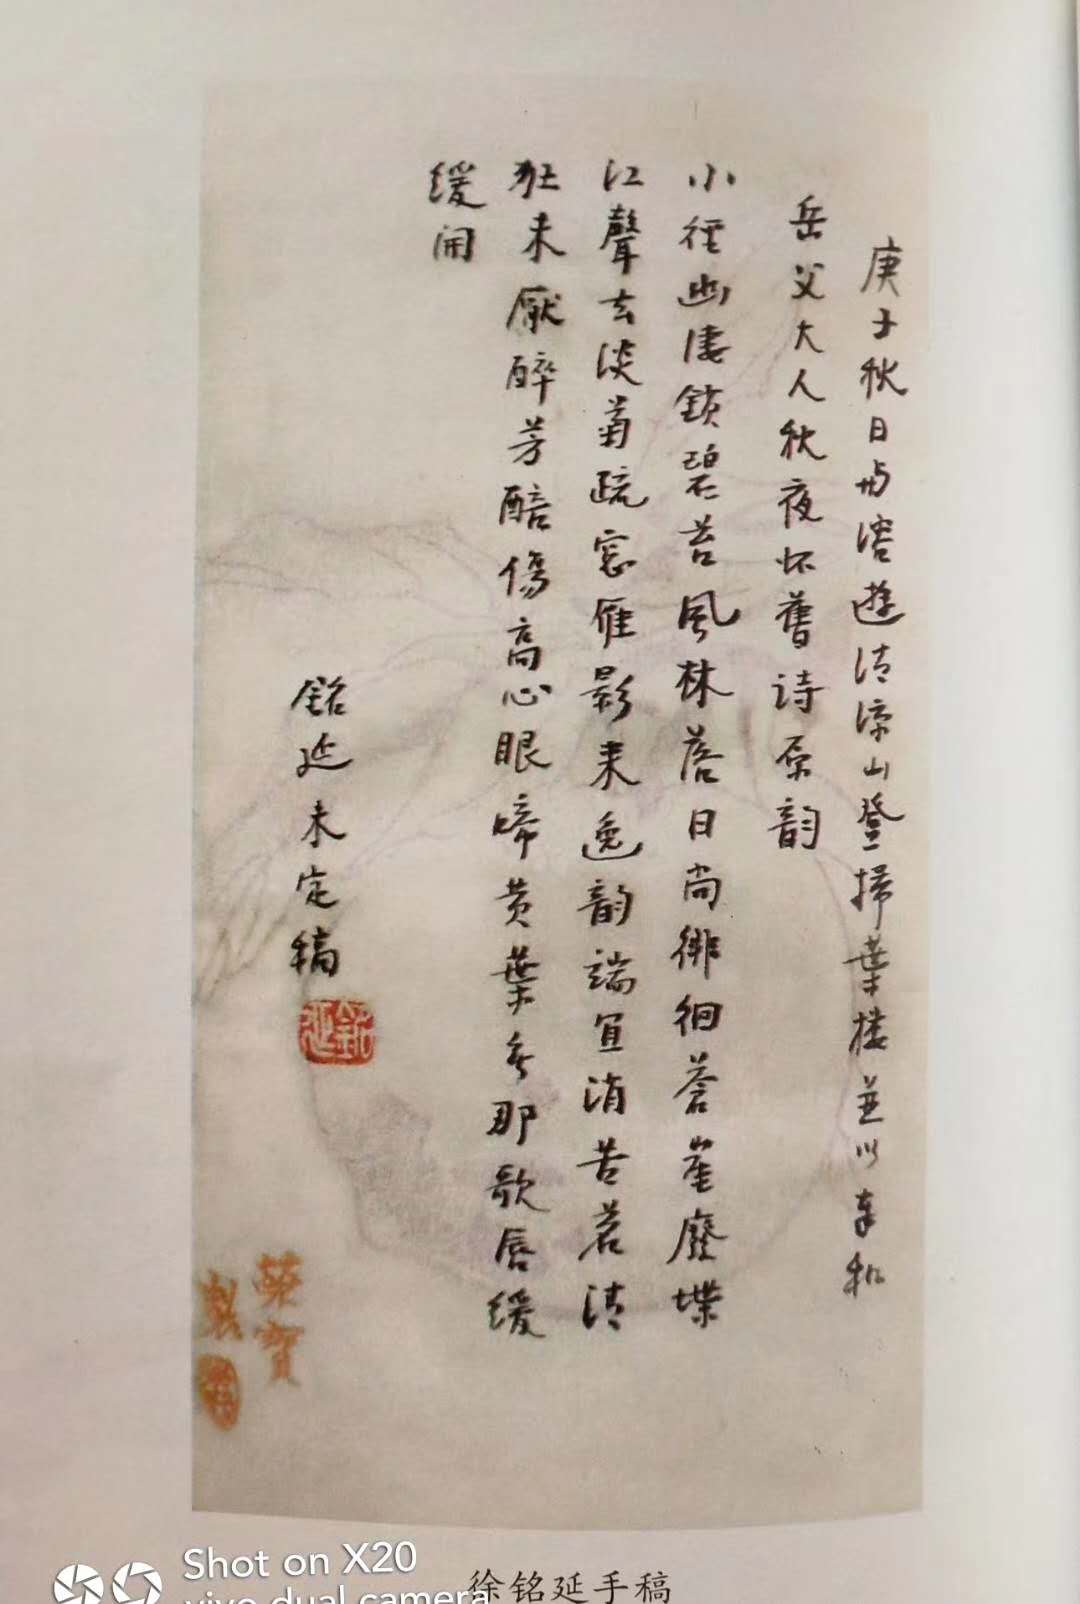 庚子秋日与溶遊清涼山登掃葉楼並以奉和
岳父大人秋夜怀舊诗原韵
小徑幽凄鎖碧苔風林落日尚徘徊蒼崖廢堞
江聲去淡菊疏窓雁影来逸韵端宜消苦茗清
狂未厭醉芳醅傷高心眼啼黄葉無那歌唇緩
緩開
銘延未定稿
銘延
榮寶
製
Shot on X20
vivo dual camera
徐铭延手稿